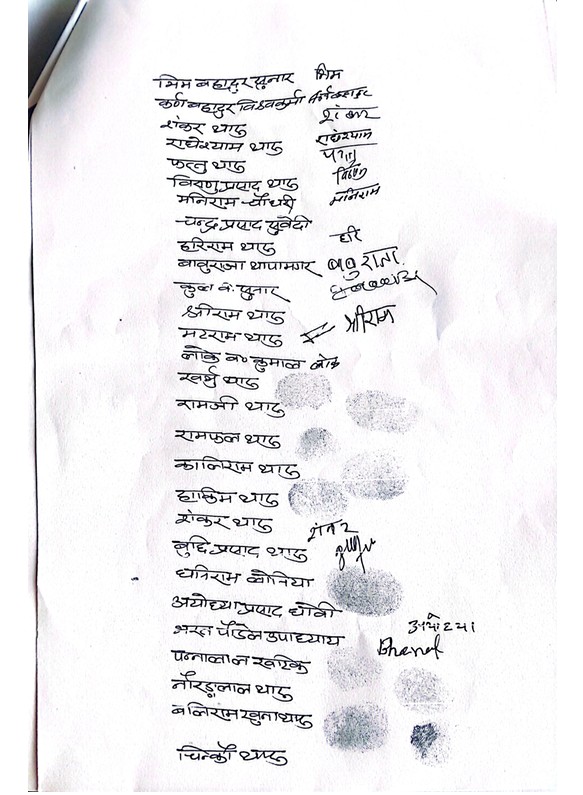 भिम बहादुर सुनार भिम
कर्ण बहादुर विश्वकर्मा कर्णबहादुर
शंकर थारु शंकर
राधेश्याम थारु राधेश्याम
फत्तु थारु
विष्णु प्रसाद थारु विष्णु
मनिराम चौधरी मनिराम
चन्द्र प्रसाद सुवेदी
हरिराम थारु हरि
बाबुराजा थापामगर बाबुराजा
कुल ब. सुनार
श्रीराम थारु श्रीराम
मटराम थारु
लोक ब० कुमाल लोक
खर्चु थारु
रामजी थारु
रामफल थारु
कालिराम थारु
हाकिम थारु
शंकर थारु शंकर
बुद्धि प्रसाद थारु
धनिराम कोरिया
अयोध्या प्रसाद धोवी अयोध्या
भरत पौडेल उपाध्याय Bharat
पन्नालाल खटिक
नौरङ्गलाल थारु
बलिराम खुना थारु
चिन्कौ थारु